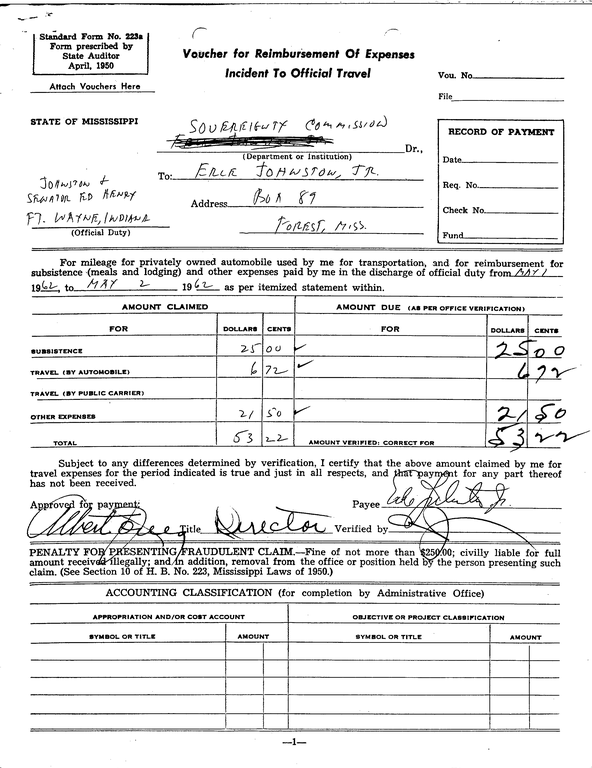 Standard Form No. 223a
Form prescribed by
State Auditor
April, 1950
Attach Vouchers Here
Voucher for Reimbursement Of Expenses
Incident To Official Travel
Vou. No.
File
STATE OF MISSISSIPPI
SOVEREIGNTY COMMISSION
Dr.,
(Department or Institution)
To: ERLE JOHNSTON, JR.
Address BOX 89
FOREST, MISS.
JOHNSTON &
SENATOR ED HENRY
FT. WAYNE, INDIANA
(Official Duty)
RECORD OF PAYMENT
Date
Req. No.
Check No.
Fund
For mileage for privately owned automobile used by me for transportation, and for reimbursement for
subsistence (meals and lodging) and other expenses paid by me in the discharge of official duty from MAY 1
1962, to MAY 2 1962 as per itemized statement within.
AMOUNT CLAIMED AMOUNT DUE (AS PER OFFICE VERIFICATION)
FOR DOLLARS CENTS FOR DOLLARS CENTS
SUBSISTENCE 25 00 25 00
TRAVEL (BY AUTOMOBILE) 6 72 6 72
TRAVEL (BY PUBLIC CARRIER)
OTHER EXPENSES 21 50 21 50
TOTAL 53 22 AMOUNT VERIFIED: CORRECT FOR $53 22
Subject to any differences determined by verification, I certify that the above amount claimed by me for
travel expenses for the period indicated is true and just in all respects, and that payment for any part thereof
has not been received.
Approved for payment: Payee Erle Johnston Jr.
Title Director Verified by
PENALTY FOR PRESENTING FRAUDULENT CLAIM.—Fine of not more than $250.00; civilly liable for full
amount received illegally; and in addition, removal from the office or position held by the person presenting such
claim. (See Section 10 of H. B. No. 223, Mississippi Laws of 1950.)
ACCOUNTING CLASSIFICATION (for completion by Administrative Office)
APPROPRIATION AND/OR COST ACCOUNT OBJECTIVE OR PROJECT CLASSIFICATION
SYMBOL OR TITLE AMOUNT SYMBOL OR TITLE AMOUNT
—1—